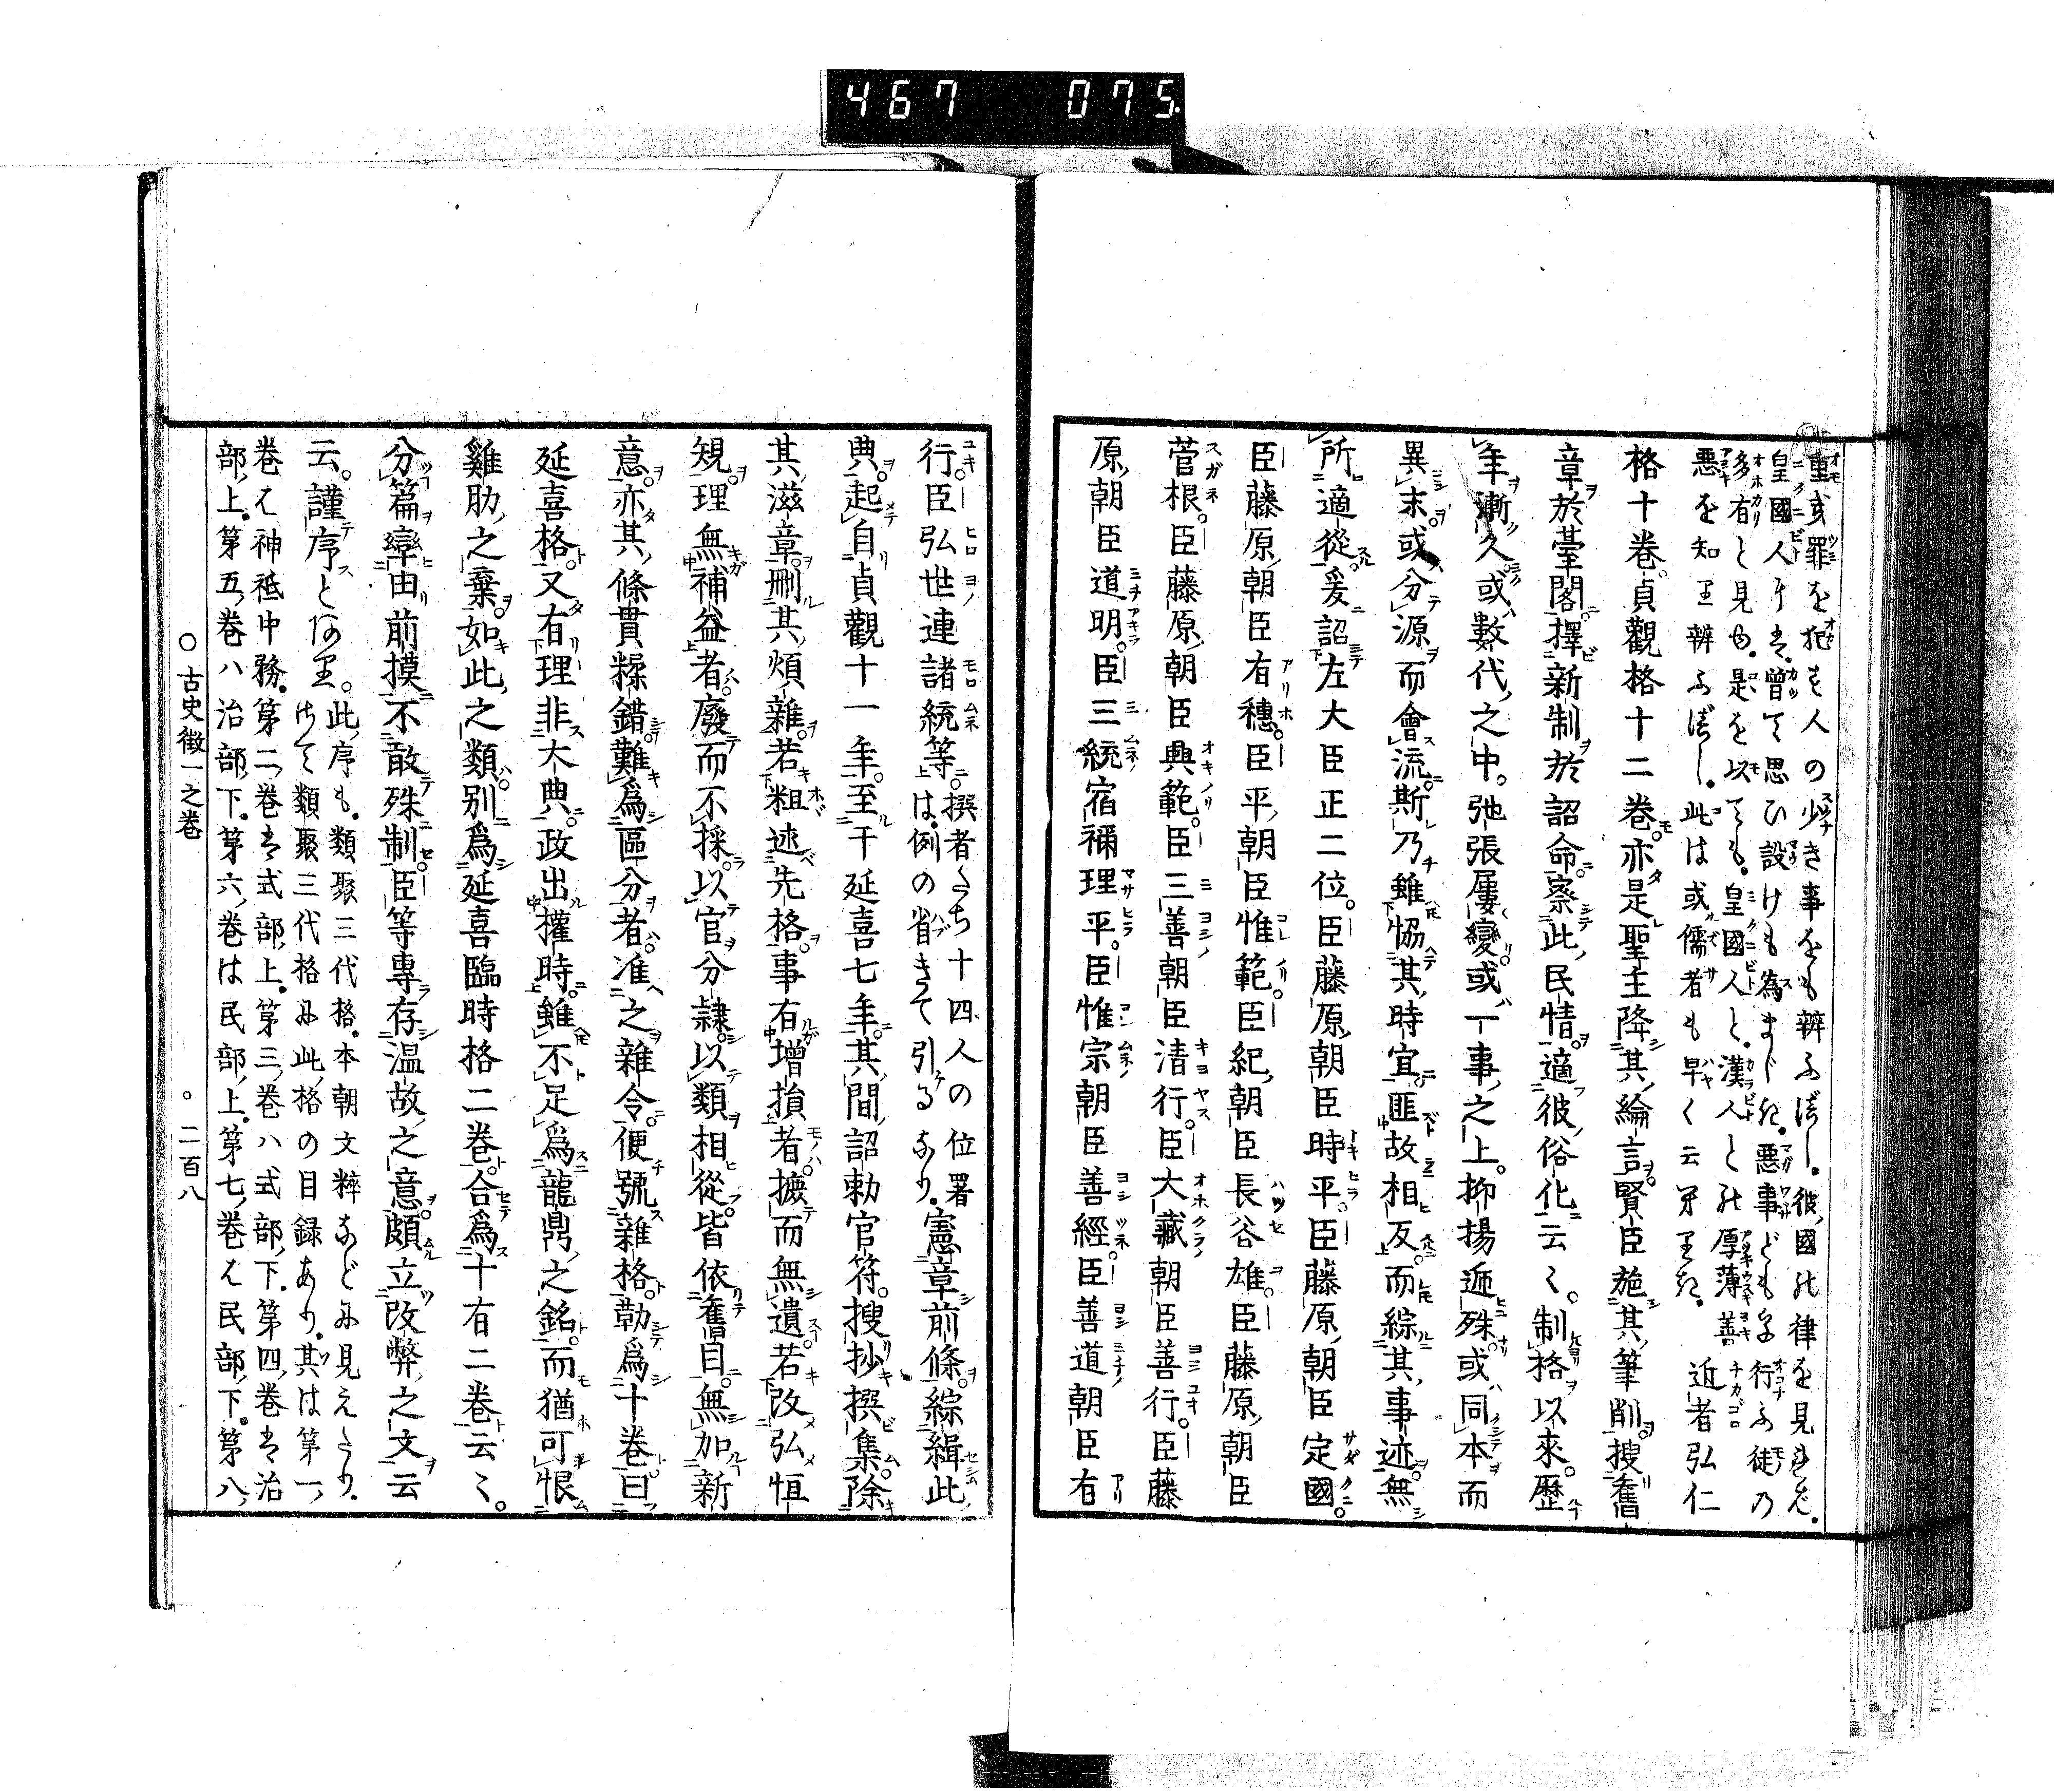 467 075.
重き罪を犯す人の少き事をも辨ふべし。彼國の律を見れば。
皇國人は。曾て思ひ設けも為まじき。惡事ども多行ふ徒の
多有と見ゆ。是を以ても。皇國人と。漢人との厚薄善
惡を知り辨ふべし。此は或儒者も早く云おりき。近者弘仁
格十卷。貞觀格十二卷。亦是聖主降其綸言。賢臣施其筆削。搜舊
章於臺閣。擇新制於詔命。察此民情。適彼俗化云々。制格以來。歷
年漸久。或數代之中。弛張屢變。或一事之上。抑揚遞殊。或同本而
異末。或分源而會流。斯乃雖協其時宜。匪故相反。而綜其事迹。無
所適從。爰詔左大臣正二位。臣藤原朝臣時平。臣藤原朝臣定國。
臣藤原朝臣有穗。臣平朝臣惟範。臣紀朝臣長谷雄。臣藤原朝臣
菅根。臣藤原朝臣興範。臣三善朝臣清行。臣大藏朝臣善行。臣藤
原朝臣道明。臣三統宿禰理平。臣惟宗朝臣善經。臣善道朝臣有
行。臣弘世連諸統等。撰者たち十四人の位署は。例の省きて引けるなり。憲章前條。綜緝此
典。起自貞觀十一年。至于延喜七年。其間詔勅官符。搜抄撰集。除
其滋章。刪其煩雜。若粗述先格。事有增損者。摭而無遺。若改弘恒
規。理無補益者。廢而不採。以官分隷。以類相從。皆依舊目。無加新
意。亦其條貫糅錯。難爲區分者。准之雜令。便號雜格。勒爲十卷。曰
延喜格。又有理非大典。政出權時。雖不足爲龍鼎之銘。而猶可恨
雞肋之棄。如此之類。別爲延喜臨時格二卷。合爲十有二卷云々。
分篇章由前摸。不敢殊制。臣等專存温故之意。頗立改弊之文云
云。謹序とあり。此序も。類聚三代格。本朝文粹などに見えたり。さて類聚三代格に此格の目録あり。其は第一、
卷は神祇中務。第二、卷は式部上。第三、卷ハ式部下。第四、卷は治
部上。第五、卷ハ治部下。第六、卷は民部上。第七、卷は民部下。第八、
○古史徵一之卷 ○二百八